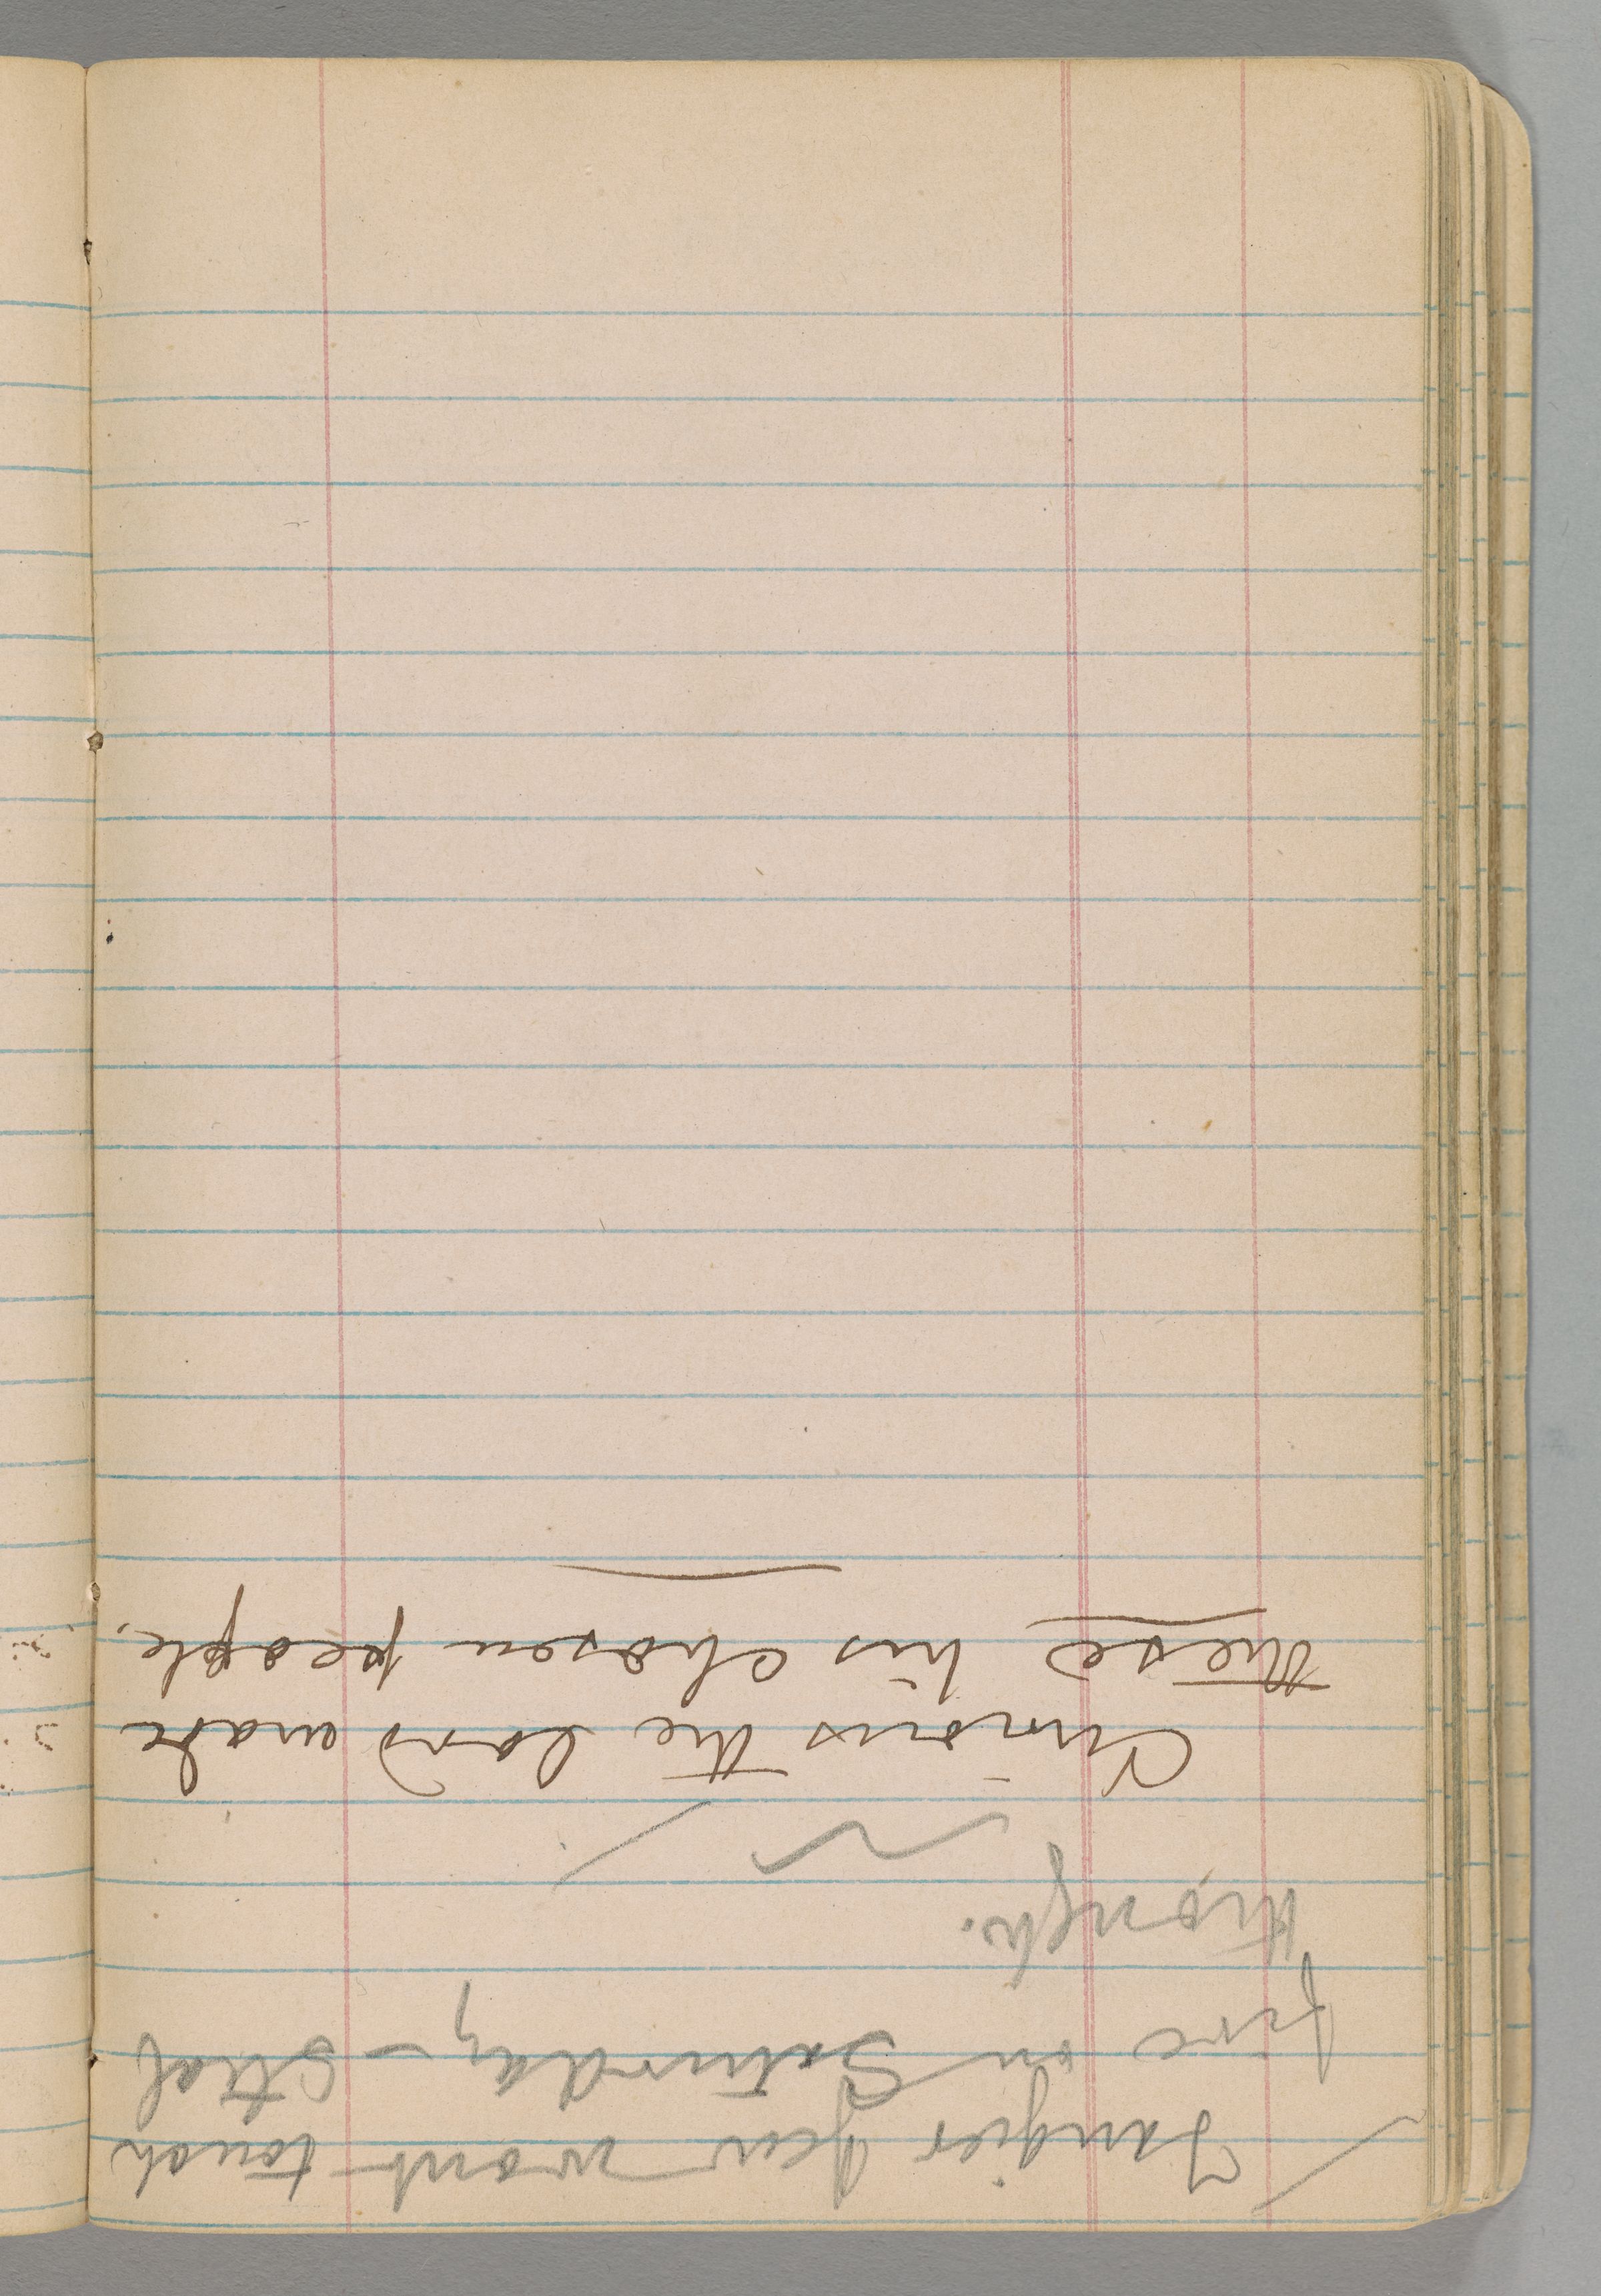 Tangier Jew wont touch
fire on Saturday – Steal
though.
Curious the Lord made
these his chosen people.